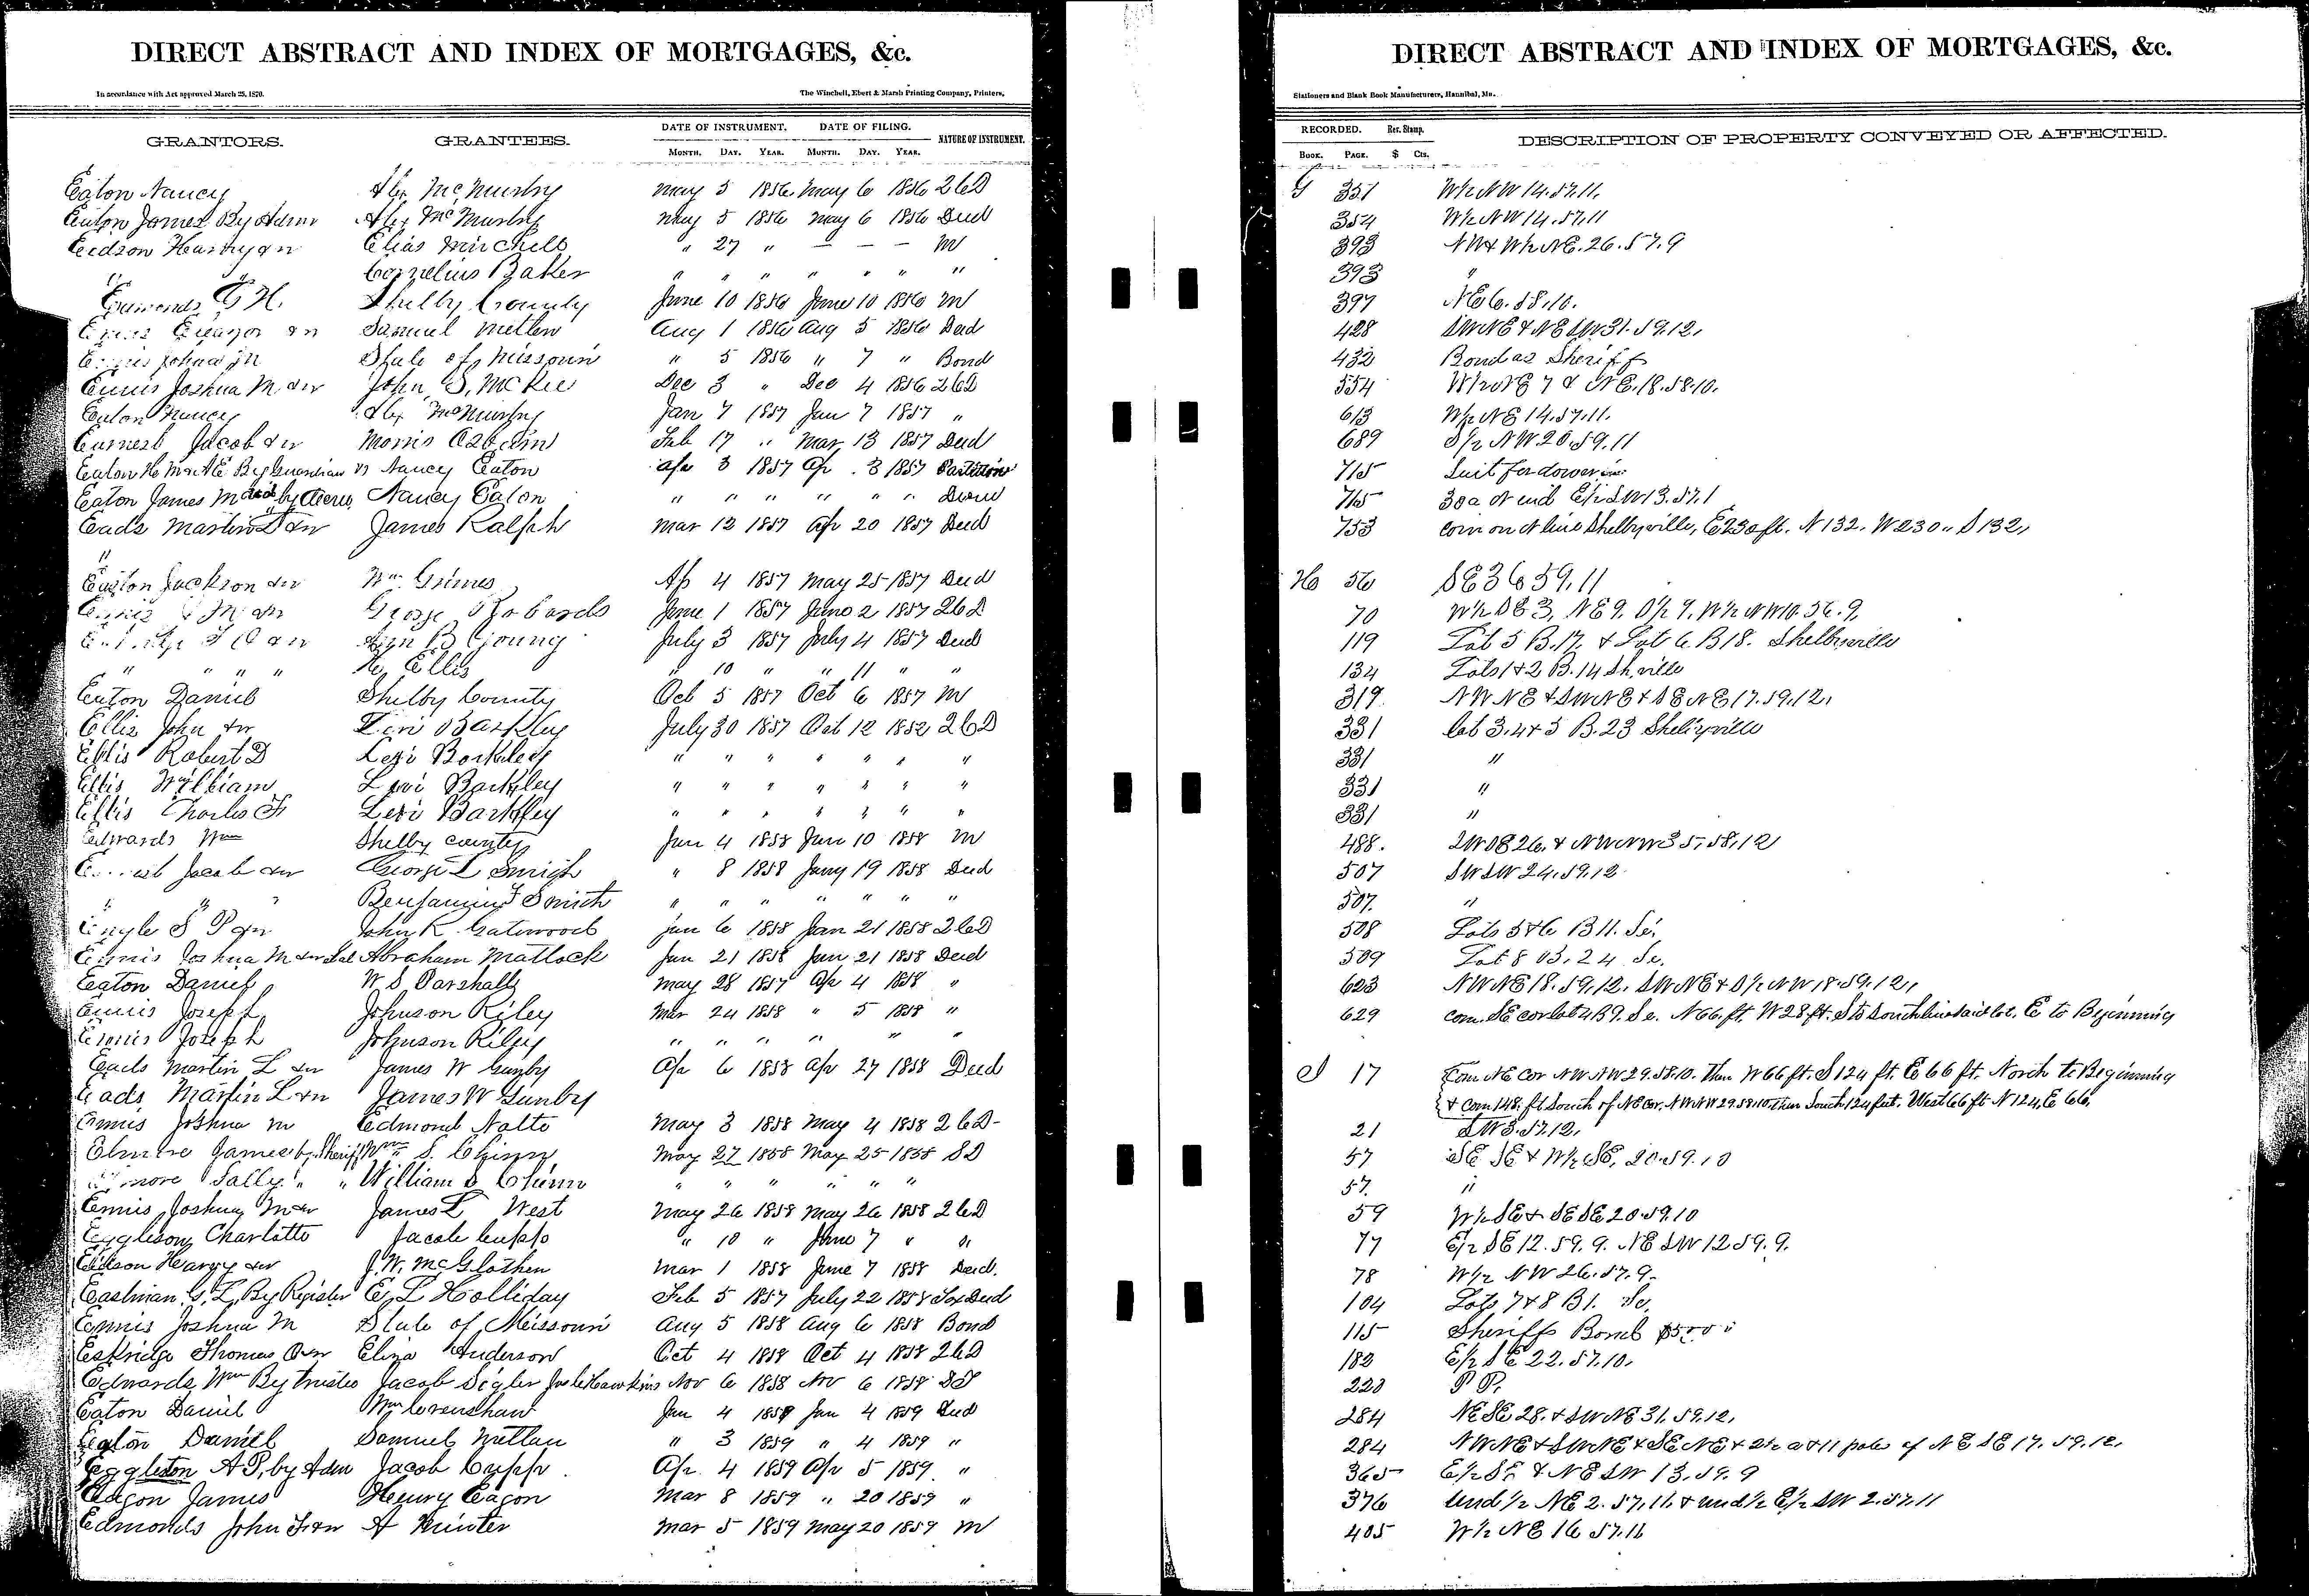 DIRECT ABSTRACT AND INDEX OF MORTGAGES, &c.
In accordance with Act approved March 25, 1870.
The Winchell, Ebert & Marsh Printing Company, Printers,
GRANTORS. GRANTEES. DATE OF INSTRUMENT. DATE OF FILING. NATURE OF INSTRUMENT.
MONTH. DAY. YEAR. MONTH. DAY. YEAR.
Eaton Nancy Alex McMurtry May 5 1856 May 6 1856 Q C D
Eaton James By Admr Alex McMurtry May 5 1856 May 6 1856 Deed
Eidson Henry Elias Mitchell " 27 " — — — M
" Cornelius Baker " " " " " " "
Edmonds H. Shelby County June 10 1856 June 10 1856 M
Samuel Aug 1 1856 Aug 5 1856 Deed
State of Missouri " 5 1856 " 7 " Bond
Ennis Joshua M. &w John S. McKee Dec 3 " Dec 4 1856 Q C D
Eaton Nancy Alex McMurtry Jan 7 1857 Jan 7 1857 "
Earnest Jacob &w Morris Feb 17 " Mar 13 1857 Deed
Eaton By Guardian vs Nancy Eaton Apr 3 1857 Apr 3 1857 Partition
Eaton James M Nancy Eaton " " " " " "
Eads Martin L &w James Ralph Mar 12 1857 Apr 20 1857 Deed
"
Easton Jackson &w Wm Grimes Ap 4 1857 May 25 1857 Deed
George June 1 1857 June 2 1857 Q C D
Young July 3 1857 July 4 1857 Deed
" " " " Ellis " 10 " " 11 " "
Eaton Daniel Shelby County Oct 5 1857 Oct 6 1857 M
Ellis John &w Levi Barkley July 30 1857 Oct 12 1852 Q C D
Ellis Robert D Levi Barkley " " " " " " "
Ellis William Levi Barkley " " " " " " "
Ellis Charles F Levi Barkley " " " " " " "
Edwards Wm Shelby County Jan 4 1858 Jan 10 1858 M
Jacob &w George L Smith " 8 1858 Jany 19 1858 Deed
" " " Benjamin F Smith " " " " " " "
Engle S P &w John R. Gatewood Jan 6 1858 Jan 21 1858 Q C D
Ennis Joshua M &w Abraham Matlock Jan 21 1858 Jan 21 1858 Deed
Eaton Daniel W S Parshall May 28 1857 Apr 4 1858 "
Ennis Joseph Johnson Riley Mar 24 1858 " 5 1858 "
Ennis Joseph Johnson Riley " " " " " "
Eads Martin L &w James W Gunby Apr 6 1858 Apr 27 1858 Deed
Eads Martin L &w James W Gunby
Ennis Joshua M Edmond Nalte May 3 1858 May 4 1858 Q C D
Elmore James by Sheriff Wm S. Chinn May 27 1858 May 25 1858 S D
Elmore Sally " " William S Chinn " " " " " "
Ennis Joshua M &w James L West May 26 1858 May 26 1858 Q C D
Eggleson Charlotte Jacob Cupp " 10 " June 7 " "
Eidson Henry &w J. W. McGlothen Mar 1 1858 June 7 1858 Deed.
Eastman G. L. By Register E. L Holliday Feb 5 1857 July 22 1858 Tax Deed
Ennis Joshua M State of Missouri Aug 5 1858 Aug 6 1858 Bond
Eskridge Thomas &w Eliza Anderson Oct 4 1858 Oct 4 1858 Q C D
Edwards Wm By Trustee Jacob Sigler Nov 6 1858 Nov 6 1858
Eaton Daniel Wm Crenshaw Jan 4 1859 Jan 4 1859 Deed
Eaton Daniel Samuel " 3 1859 " 4 1859 "
Eggleston A P, by Adm Jacob Cupp Apr. 4 1859 Apr 5 1859 "
Eagon James Henry Eagon Mar 8 1859 " 20 1859 "
Edmonds John F &w A Hunter Mar 5 1859 May 20 1859 M
DIRECT ABSTRACT AND INDEX OF MORTGAGES, &c.
Stationers and Blank Book Manufacturers, Hannibal, Mo.
RECORDED. Rev. Stamp. DESCRIPTION OF PROPERTY CONVEYED OR AFFECTED.
BOOK. PAGE. $ Cts.
G 351 W½ NW 14.57.11.
354 W½ NW 14.57.11
393 NW & W½ NE. 26.57.9
393 "
397 NE 6.58.10.
428 SWNE & NESW 31.59.12.
432 Bond as Sheriff
554 W½ NE 7 & NE.18.58.10.
613 W½ NE 14.57.11.
689 S½ NW 20.59.11
715 Suit for dower
715 30a N end E½ SW 13.57.1
753 com on N line Shelbyville, E 230 ft. N 132. W 230 " S 132,
H 56 SE 36 59.11
70 W½ SE 3, NE 9. W½ NW 10.56.9.
119 Lot 5 B.17. & Lot 6. B 18. Shelbyville
134 Lots 1 & 2 B.14 Sh.ville
319. NW NE & SWNE & SENE 17.59.12.
331 lot 3.4 & 5 B.23 Shelbyville
331 "
331 "
331 "
488. SWSE 26. & NWNW 35.58.12
507 SWSW 24.59.12
507. "
508 Lots 5 & 6 B 11. Se.
509 Lot 8 B. 24 Se.
623 NWNE 18.59.12. SWNE & S½ NW 18.59.12.
629 com. SE cor lot 4 B 9. Se. N 66 ft. W 28 ft. S to South line said lot, E to Beginning
I 17 Com NE cor NW NW 29.58.10. then W 66 ft. S 124 ft. E 66 ft. North to Beginning
& com 148 ft South of NE cor. NWNW 29.58.10 then South 124 feet. West 66 ft N 124, E 66.
21 SW 3.57.12.
57 SE SE & W½ SE, 20.59.10
57. "
59 W½ SE & SESE 20.59.10
77 E½ SE 12.59.9. NESW 12 59.9.
78 W½ NW 26.57.9.
104 Lots 7 & 8 B 1. Se.
115 Sheriffs Bond $5000
182 E½ SE 22.57.10.
223 P P.
284 NESE 28. & SWNE 31.59.12.
284 NWNE & SWNE & SENE & 2½ a & 11 poles of NESE 17.59.12.
365 E½ SE & NESW 13.59.9
376 Und ½ NE 2.57.11. & und ½ E½ SW 2.57.11
405 W½ NE 16 57.11